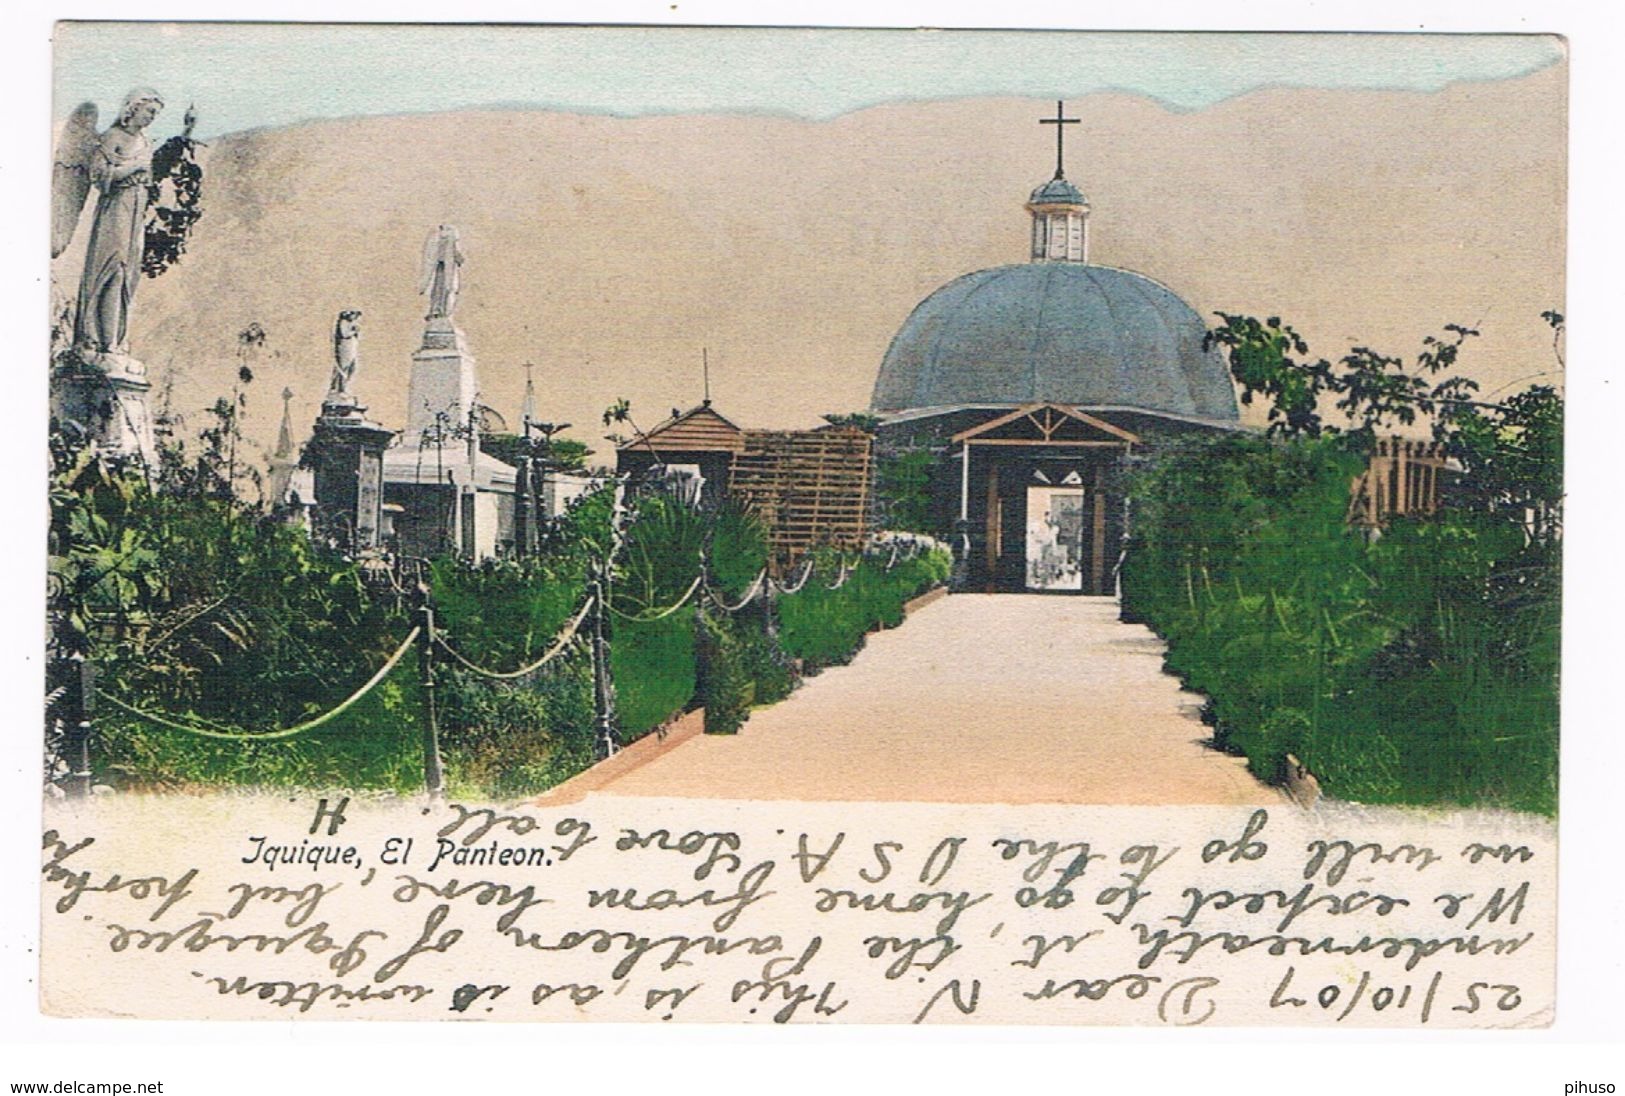 Iquique, El Panteon.
25/10/07 Dear N. This is, as is written
underneath it, the Pantheon of Iquique.
We expect to go home from here, but perhaps
we will go to the U S A. Love to all.
H
www.delcampe.net
pihuso